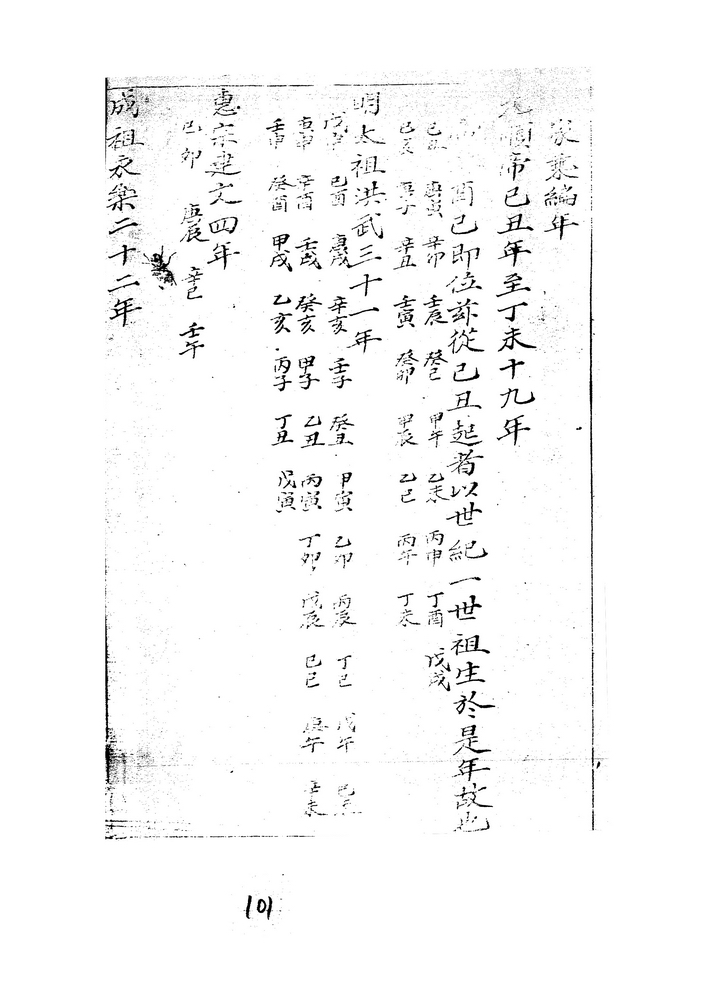 家乘編年
元順帝己丑年至丁未十九年
酉已即位玆從己丑起者以世紀一世祖生於是年故也
己丑 庚寅 辛卯 壬辰 癸巳 甲午 乙未 丙申 丁酉 戊戌
己亥 庚子 辛丑 壬寅 癸卯 甲辰 乙巳 丙午 丁未
明太祖洪武三十一年
戊申 己酉 庚戌 辛亥 壬子 癸丑 甲寅 乙卯 丙辰 丁巳 戊午 己未
庚申 辛酉 壬戌 癸亥 甲子 乙丑 丙寅 丁卯 戊辰 己巳 庚午 辛未
壬申 癸酉 甲戌 乙亥 丙子 丁丑 戊寅
惠宗建文四年
己卯 庚辰 辛巳 壬午
成祖永樂二十二年
101